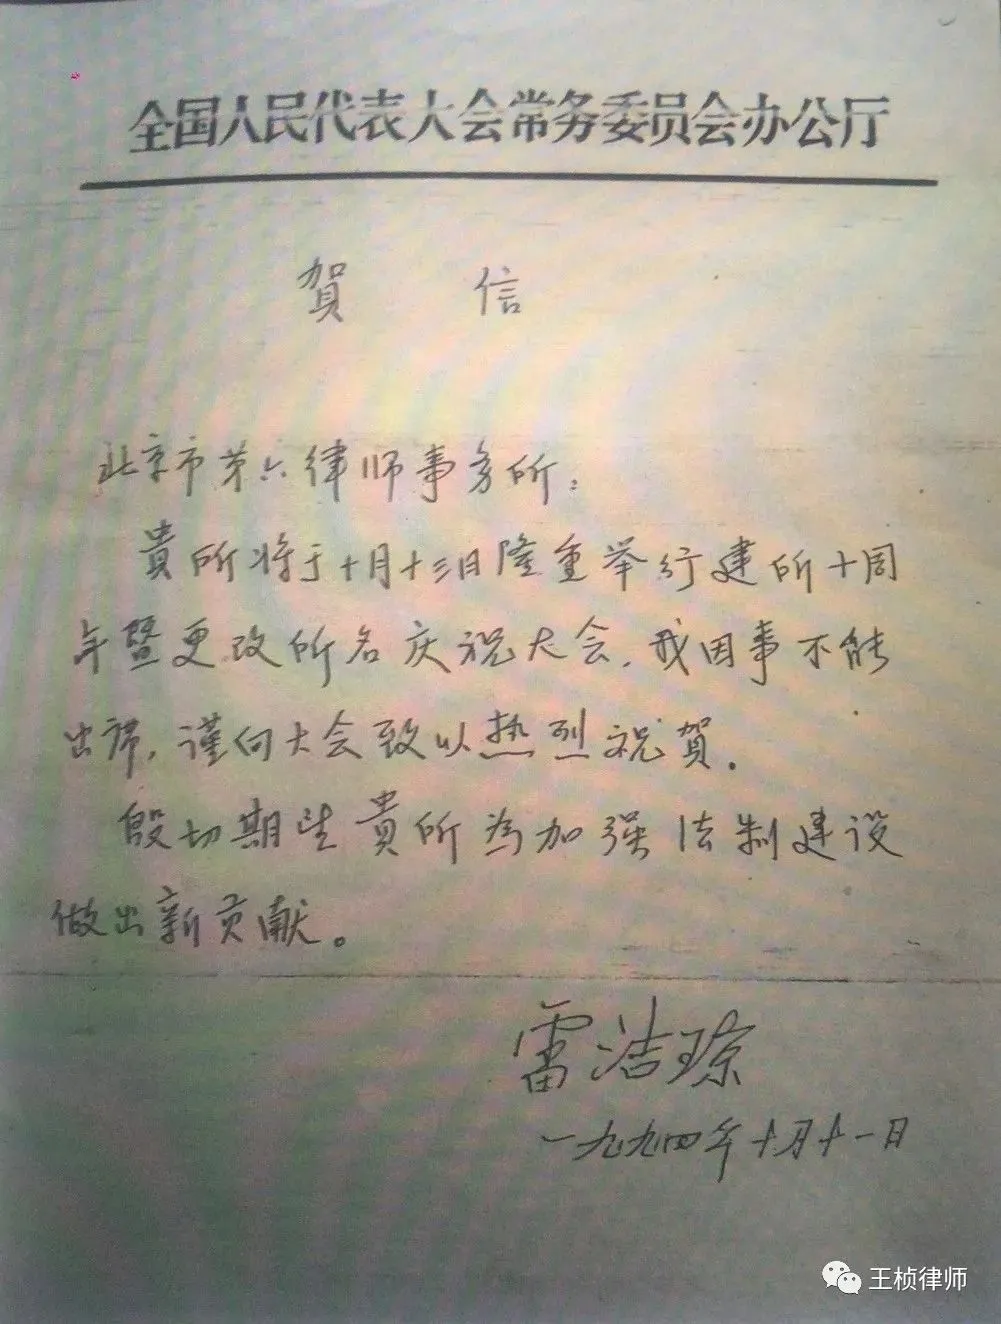 全国人民代表大会常务委员会办公厅
賀 信
北京市第六律师事务所：
貴所将于十月十三日隆重举行建所十周
年暨更改所名庆祝大会，我因事不能
出席，谨向大会致以热烈祝賀。
殷切期望貴所為加强法制建设
做出新贡献。
雷洁琼
一九九四年十月十一日
王桢律师